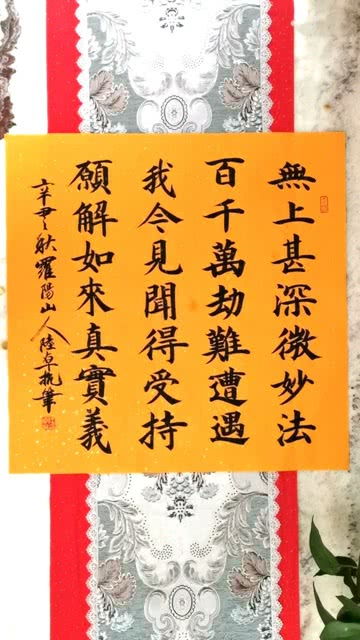 無上甚深微妙法
百千萬劫難遭遇
我今見聞得受持
願解如來真實義
辛丑之秋羅陽山人陸卓筆